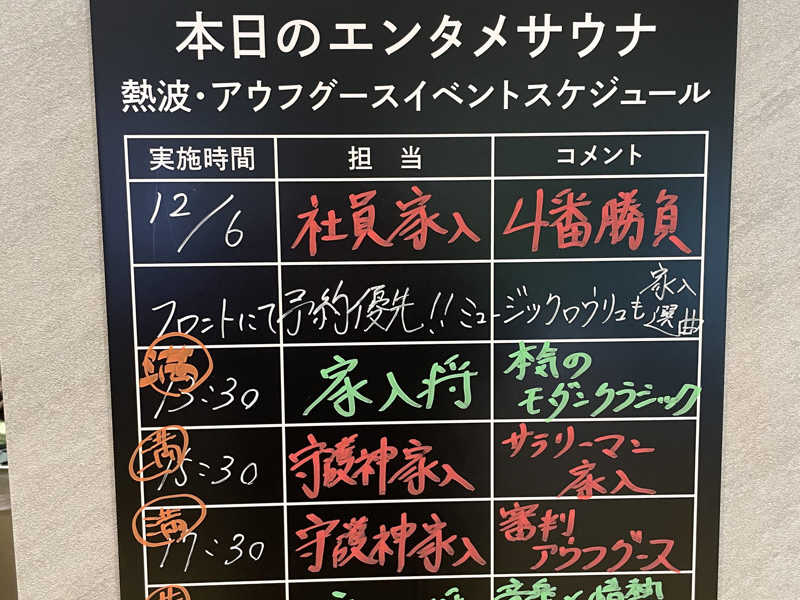 本日のエンタメサウナ
熱波・アウフグースイベントスケジュール
実施時間 担当 コメント
12/6 社員家入 4番勝負
フロントにて予約優先!!ミュージックロウリュも家入選曲
満 13:30 家入将 本気の
モダンクラシック
満 15:30 守護神家入 サラリーマン
家入
満 17:30 守護神家入 審判
アウフグース